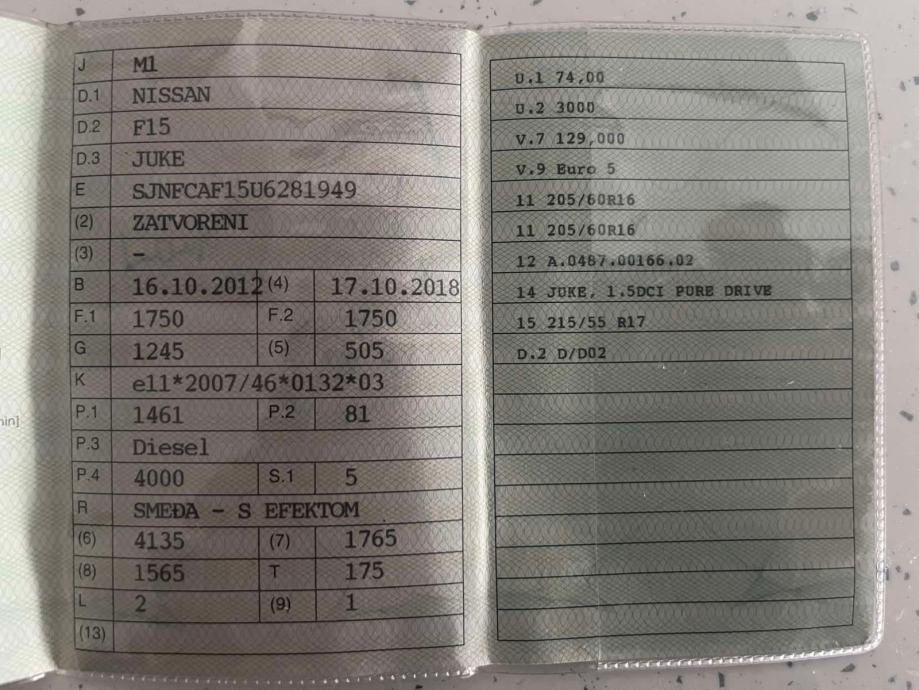 J M1
D.1 NISSAN
D.2 F15
D.3 JUKE
E SJNFCAF15U6281949
(2) ZATVORENI
(3) –
B 16.10.2012 (4) 17.10.2018
F.1 1750 F.2 1750
G 1245 (5) 505
K e11*2007/46*0132*03
P.1 1461 P.2 81
P.3 Diesel
P.4 4000 S.1 5
R SMEĐA – S EFEKTOM
(6) 4135 (7) 1765
(8) 1565 T 175
L 2 (9) 1
(13)
U.1 74,00
U.2 3000
V.7 129,000
V.9 Euro 5
11 205/60R16
11 205/60R16
12 A.0487.00166.02
14 JUKE, 1.5DCI PURE DRIVE
15 215/55 R17
D.2 D/D02